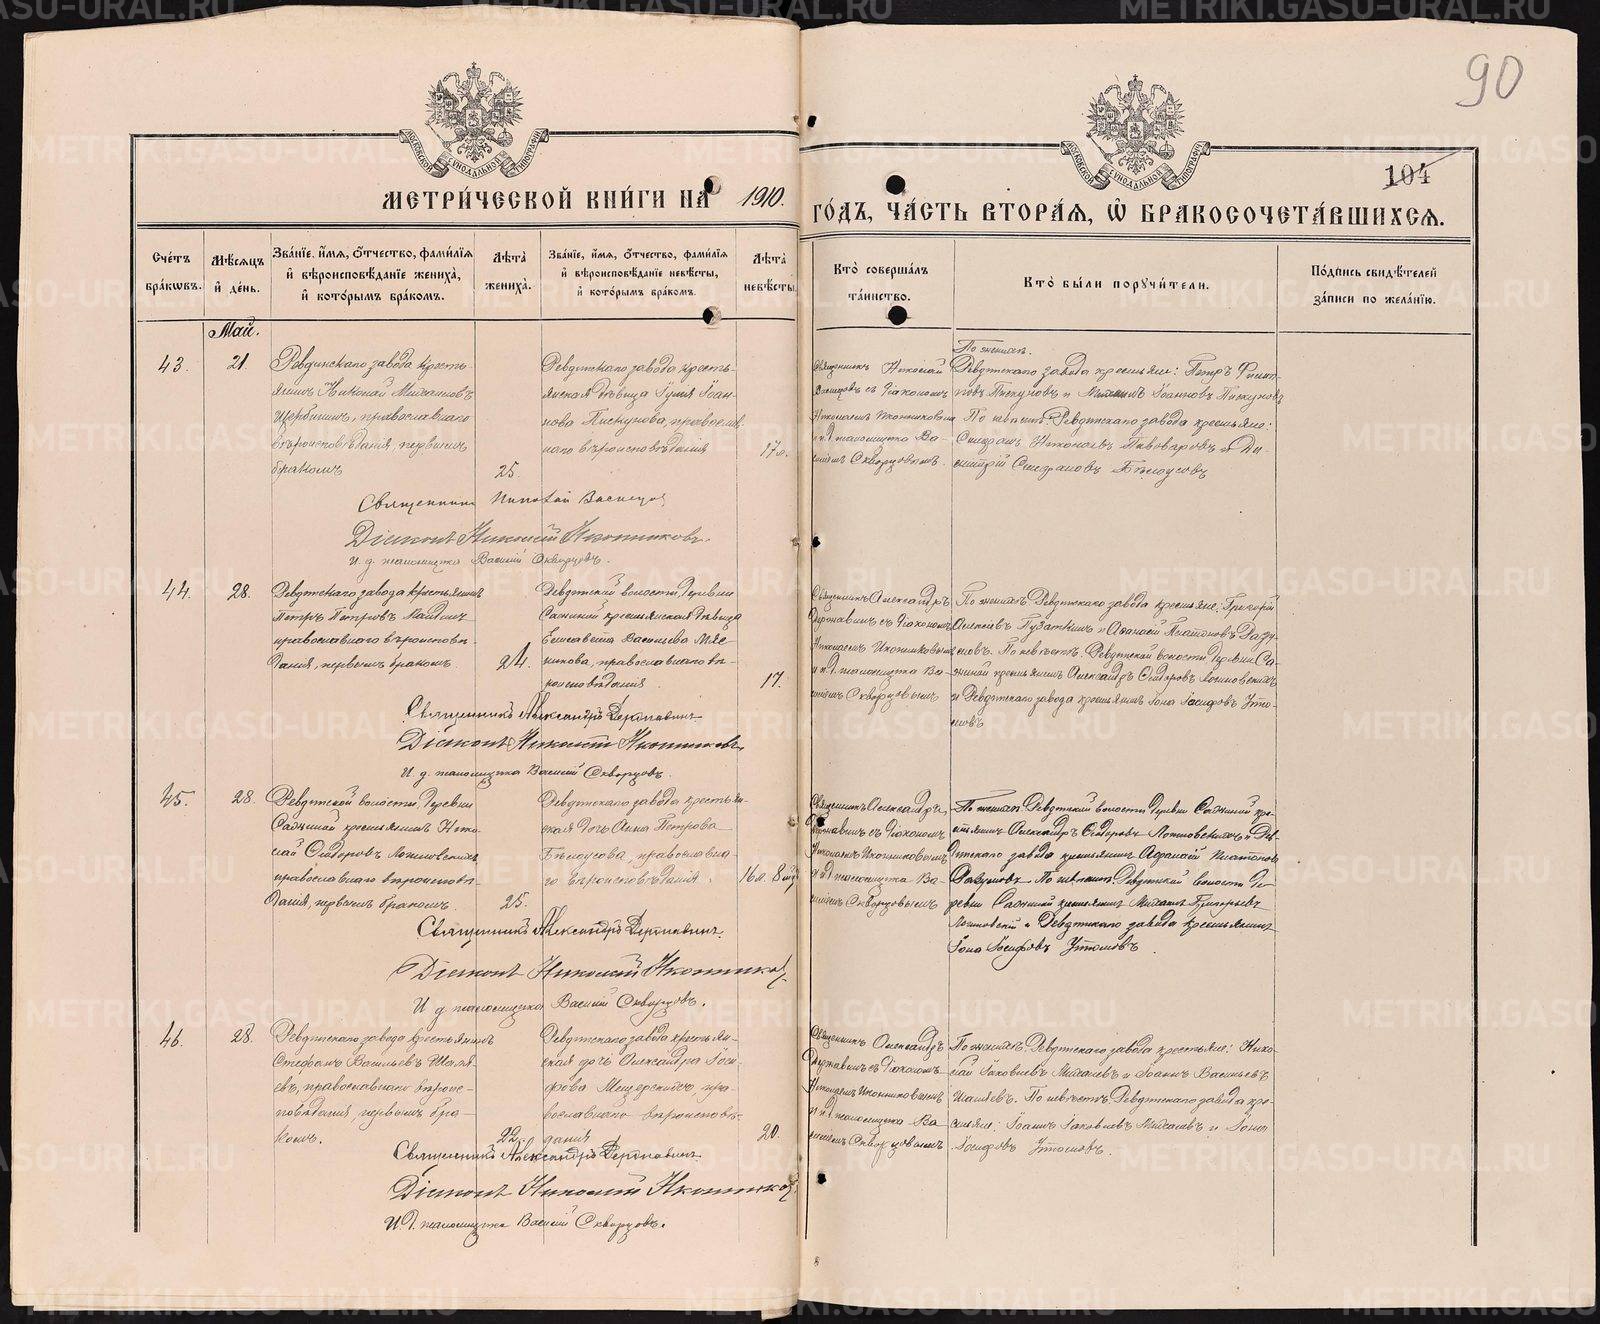 90
104
МОСКОВСКОЙ СѴНОДАЛЬНОЙ ТИПОГРАФІИ
МОСКОВСКОЙ СѴНОДАЛЬНОЙ ТИПОГРАФІИ
МЕТРИ́ЧЕСКОЙ КНИ́ГИ НА 1910. ГО́ДЪ, ЧА́СТЬ ВТОРА́Я, Ѡ БРАКОСОЧЕТА́ВШИХСЯ.
Сче́тъ бра́кѡвъ.
Мѣ́сяцъ и де́нь.
Зва́ніе, и́мя, ѻ́тчество, фами́лія и вѣроисповѣ́даніе жениха̀, и кото́рымъ бра́комъ.
Лѣ́та жениха̀.
Зва́ніе, и́мя, ѻ́тчество, фами́лія и вѣроисповѣ́даніе невѣ́сты, и кото́рымъ бра́комъ.
Лѣ́та невѣ́сты.
Кто̀ соверша́лъ та́инство.
Кто̀ бы́ли порꙋчи́тели.
По́дпись свидѣ́телей за́писи по жела́нію.
Май.
43.
21.
Ревдинскаго завода кресть-
янинъ Николай Михайловъ
Щербининъ, православнаго
вѣроисповѣданія, первымъ
бракомъ
25.
Ревдинскаго завода кресть-
янская дѣвица Іулія Іоан-
нова Пискунова, православ-
наго вѣроисповѣданія
17 л.
Священникъ Николай
съ діакономъ
Николаемъ Иконниковымъ
и и.д. псаломщика Ва-
силіемъ Скворцовымъ.
По женихѣ:
Ревдинскаго завода крестьяне: Петръ Филип-
повъ Пискуновъ и Іоанновъ Пискуновъ
По невѣстѣ: Ревдинскаго завода крестьяне:
Стефанъ Николаевъ Пивоваровъ и Ди-
митрій Стефановъ Бѣлоусовъ
Священникъ Николай
Діаконъ Николай Иконниковъ.
И. д. псаломщика Василій Скворцовъ.
44.
28.
Ревдинскаго завода крестьянинъ
Петръ Петровъ
православнаго вѣроисповѣ-
данія, первымъ бракомъ
24.
Ревдинской волости, деревни
Сажиной крестьянская дѣвица
Елисавета Васильева
православнаго вѣ-
роисповѣданія.
17.
Священникъ Александръ
Державинъ съ діакономъ
Николаемъ Иконниковымъ
и и.д. псаломщика Ва-
силіемъ Скворцовымъ
По женихѣ: Ревдинскаго завода крестьяне: Григорій
Алексѣевъ и Аѳанасій Платоновъ
По невѣстѣ: Ревдинской волости, деревни Са-
жиной крестьянинъ Александръ Ѳеодоровъ Логиновскихъ
и Ревдинскаго завода крестьянинъ Іона Іосифовъ
Священникъ Александръ Державинъ
Діаконъ Николай Иконниковъ,
И. д. псаломщика Василій Скворцовъ.
45.
28.
Ревдинской волости, деревни
Сажиной крестьянинъ Нико-
лай Ѳеодоровъ Логиновскихъ,
православнаго вѣроисповѣ-
данія, первымъ бракомъ.
25.
Ревдинскаго завода крестьян-
ская дочь Анна Петрова
Бѣлоусова, православна-
го вѣроисповѣданія.
16 л. 8 мѣс.
Священникъ Александръ
Державинъ съ діакономъ
Николаемъ Иконниковымъ
и и.д. псаломщика Ва-
силіемъ Скворцовымъ
По женихѣ: Ревдинской волости деревни Сажиной кре-
стьянинъ Александръ Ѳеодоровъ Логиновскихъ и Рев-
динскаго завода крестьянинъ Аѳанасій Платоновъ
По невѣстѣ: Ревдинской волости де-
ревни Сажиной крестьянинъ Михаилъ Григорьевъ
Логиновскій и Ревдинскаго завода крестьянинъ
Іона Іосифовъ
Священникъ Александръ Державинъ.
Діаконъ Николай Иконниковъ.
И д псаломщика Василій Скворцовъ.
46.
28.
Ревдинскаго завода крестьянинъ
Стефанъ Васильевъ
православнаго вѣроис-
повѣданія первымъ бра-
комъ.
22.
Ревдинскаго завода крестьян-
ская дочь Александра Іоси-
фова Мещерскихъ, пра-
вославнаго вѣроисповѣ-
данія
20.
Священникъ Александръ
Державинъ съ діакономъ
Николаемъ Иконниковымъ
и и.д. псаломщика Ва-
силіемъ Скворцовымъ
По женихѣ: Ревдинскаго завода крестьяне: Нико-
лай Іаковлевъ и Іоаннъ Васильевъ
По невѣстѣ: Ревдинскаго завода кре-
стьяне: Іоаннъ Іаковлевъ и Іона
Іосифовъ
Священникъ Александръ Державинъ.
Діаконъ Николай Иконниковъ.
И.д. псаломщика Василій Скворцовъ.
METRIKI.GASO-URAL.RU